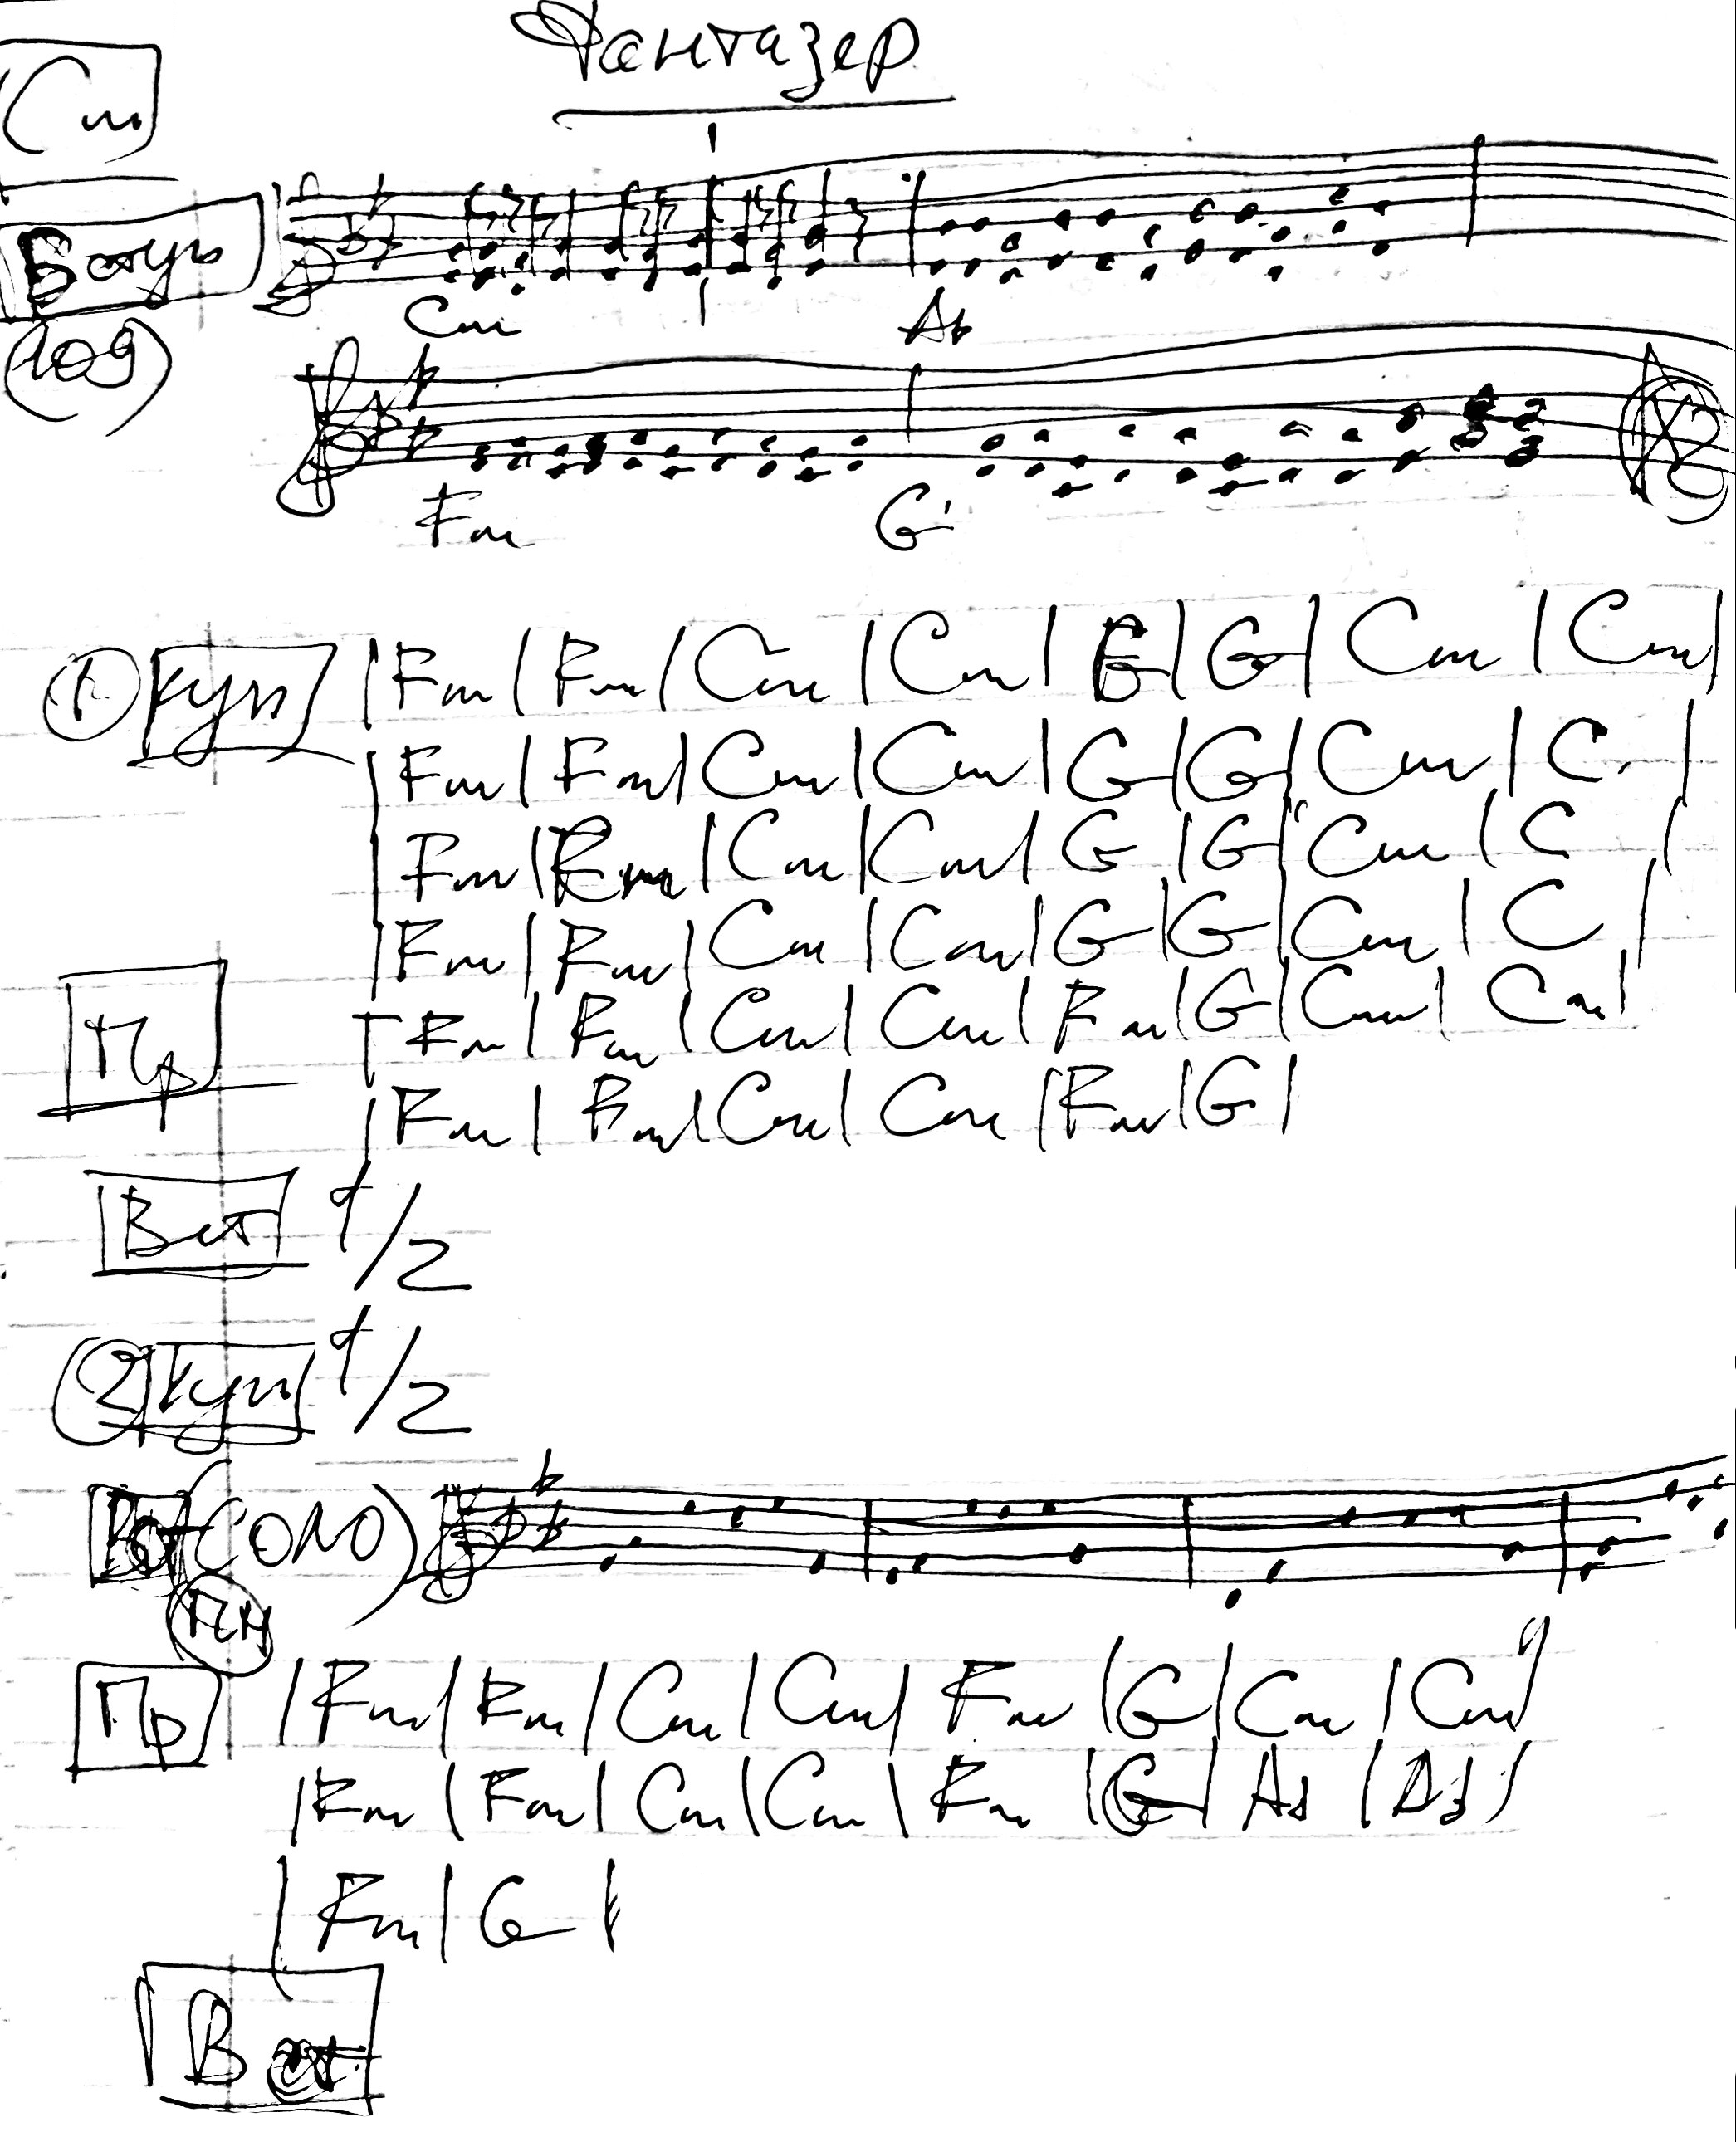 Фантазер
Cm
Вступ
Cm Ab
(109)
Fm G
1 куп |Fm|Fm|Cm|Cm|G|G|Cm|Cm|
|Fm|Fm|Cm|Cm|G|G|Cm|C|
|Fm|Fm|Cm|Cm|G|G|Cm|C|
|Fm|Fm|Cm|Cm|G|G|Cm|C|
Пр |Fm|Fm|Cm|Cm|Fm|G|Cm|Cm|
|Fm|Fm|Cm|Cm|Fm|G|
Вст 1/2
2 куп 1/2
(СОЛО)
Пр |Fm|Fm|Cm|Cm|Fm|G|Cm|Cm|
|Fm|Fm|Cm|Cm|Fm|G|Ab|Ab|
|Fm|G|
Вст